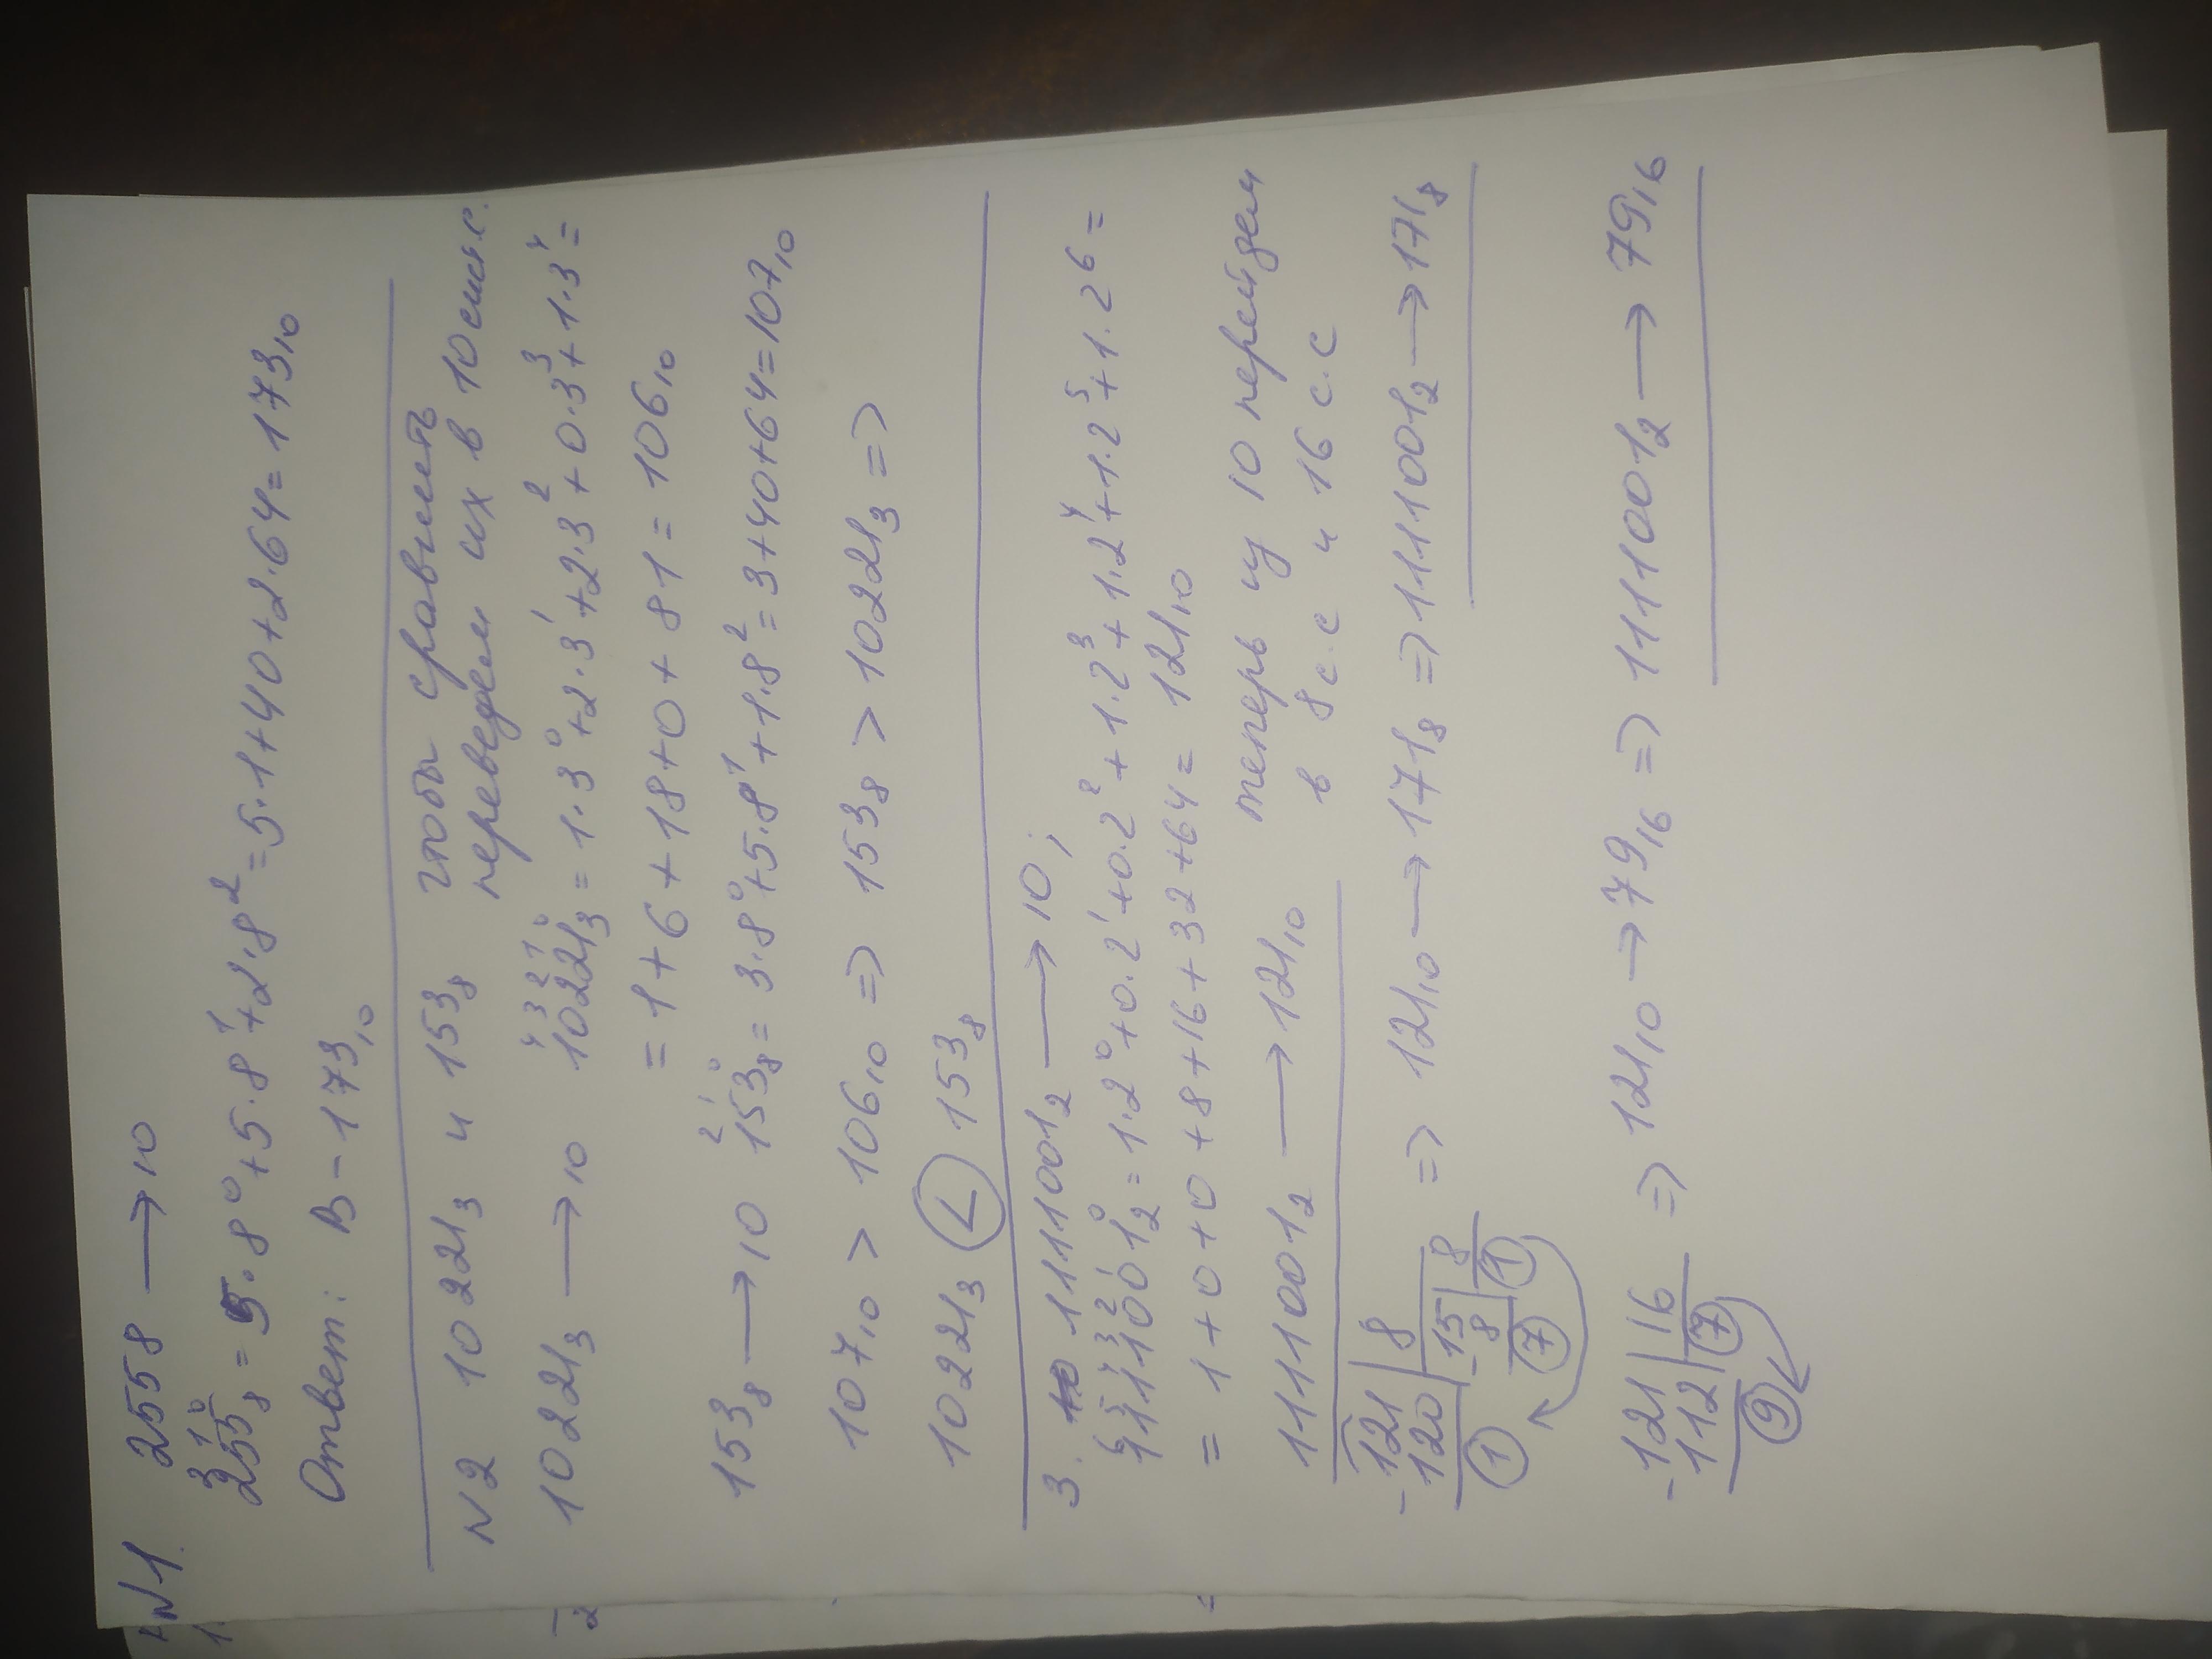 N1. 2558 → 10
2 1 0
255₈ = 5·8⁰+5·8¹+2·8² = 5·1+40+2·64 = 173₁₀
Ответ: В – 173₁₀
N2 10221₃ и 153₈ чтобы сравнить
переведем их в 10 сист.с.
4 3 2 1 0
10221₃ → 10 10221₃ = 1·3⁰+2·3¹+2·3²+0·3³+1·3⁴=
= 1+6+18+0+81 = 106₁₀
2 1 0
153₈ → 10 153₈ = 3·8⁰+5·8¹+1·8² = 3+40+64=107₁₀
107₁₀ > 106₁₀ => 153₈ > 10221₃ =>
10221₃ < 153₈
3. 1111001₂ → 10;
6 5 4 3 2 1 0
1111001₂ = 1·2⁰+0·2¹+0·2²+1·2³+1·2⁴+1·2⁵+1·2⁶=
= 1+0+0+8+16+32+64= 121₁₀
1111001₂ → 121₁₀
теперь из 10 перейдем
в 8 с.с и 16 с.с
-121 | 8
120 | -15 | 8
1 8 1
7
=> 121₁₀ → 171₈ => 1111001₂ → 171₈
-121 | 16
112 | 7
9
=> 121₁₀ → 79₁₆ => 1111001₂ → 79₁₆